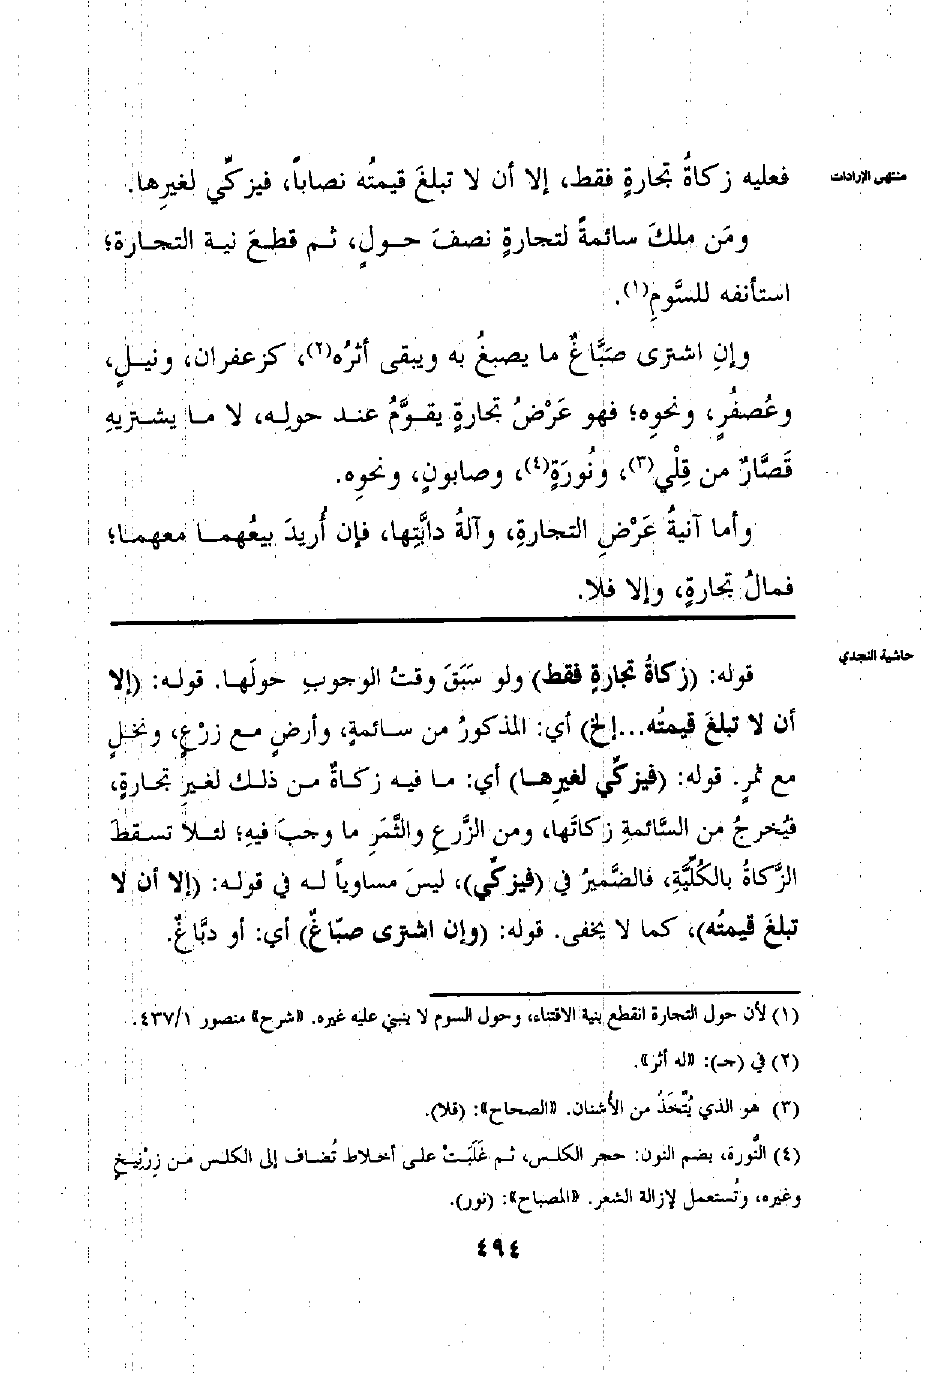 منتهى الإرادات
فعليه زكاةُ تجارةٍ فقط، إلا أن لا تبلغَ قيمتُه نصاباً، فيزكِّي لغيرِها.
ومَن ملكَ سائمةً لتجارةٍ نصفَ حولٍ، ثم قطعَ نية التجارة؛
استأنفه للسَّومِ(١).
وإنِ اشترى صبَّاغٌ ما يصبغُ به ويبقى أثرُه(٢)، كزعفران، ونيلٍ،
وعُصفُرٍ، ونحوِه؛ فهو عَرْضُ تجارةٍ يقوَّمُ عند حولِه، لا ما يشتريهِ
قَصَّارٌ من قِلْيٍ(٣)، ونُورَةٍ(٤)، وصابونٍ، ونحوِه.
وأما آنيةُ عَرْضِ التجارةِ، وآلةُ دابَّتِها، فإن أُريدَ بيعُهما معهما؛
فمالُ تجارةٍ، وإلا فلا.
حاشية النجدي
قوله: (زكاةُ تجارةٍ فقط) ولو سَبَقَ وقتُ الوجوبِ حولَها. قوله: (إلا
أن لا تبلغَ قيمتُه...إلخ) أي: المذكورُ من سائمةٍ، وأرضٍ مع زرْعٍ، ونخلٍ
مع ثمرٍ. قوله: (فيزكِّي لغيرِها) أي: ما فيه زكاةٌ من ذلك لغيرِ تجارةٍ،
فيُخرجُ من السَّائمةِ زكاتَها، ومن الزَّرعِ والثَّمَرِ ما وجبَ فيهِ؛ لئلا تسقطَ
الزَّكاةُ بالكُلِّيَّةِ، فالضَّميرُ في (فيزكِّي)، ليسَ مساوياً له في قوله: (إلا أن لا
تبلغَ قيمتُه)، كما لا يخفى. قوله: (وإن اشترى صبّاغٌ) أي: أو دبَّاغٌ.
(١) لأن حول التجارة انقطع بنية الاقتناء، وحول السوم لا ينبني عليه غيره. «شرح» منصور ٤٣٧/١.
(٢) في (جـ): «له أثر».
(٣) هو الذي يُتَّخَذُ من الأُشنان. «الصحاح»: (قلا).
(٤) النُّورة، بضم النون: حجر الكلس، ثم غَلَبَتْ على أخلاط تُضاف إلى الكلس من زِرْنِيخٍ
وغيره، وتُستعمل لإزالة الشعر. «المصباح»: (نور).
٤٩٤